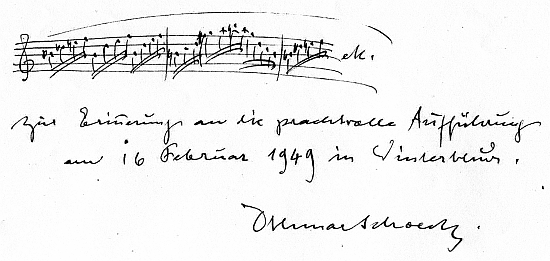 etc.
Zur Erinnerung an die prachtvolle Aufführung
am 16 Februar 1949 in Winterthur.
Othmar Schoeck.